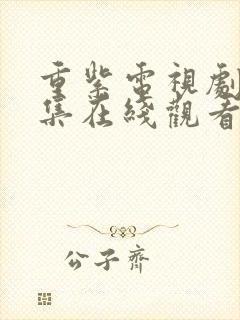 重紫電視劇
集在綫觀看
公子齊